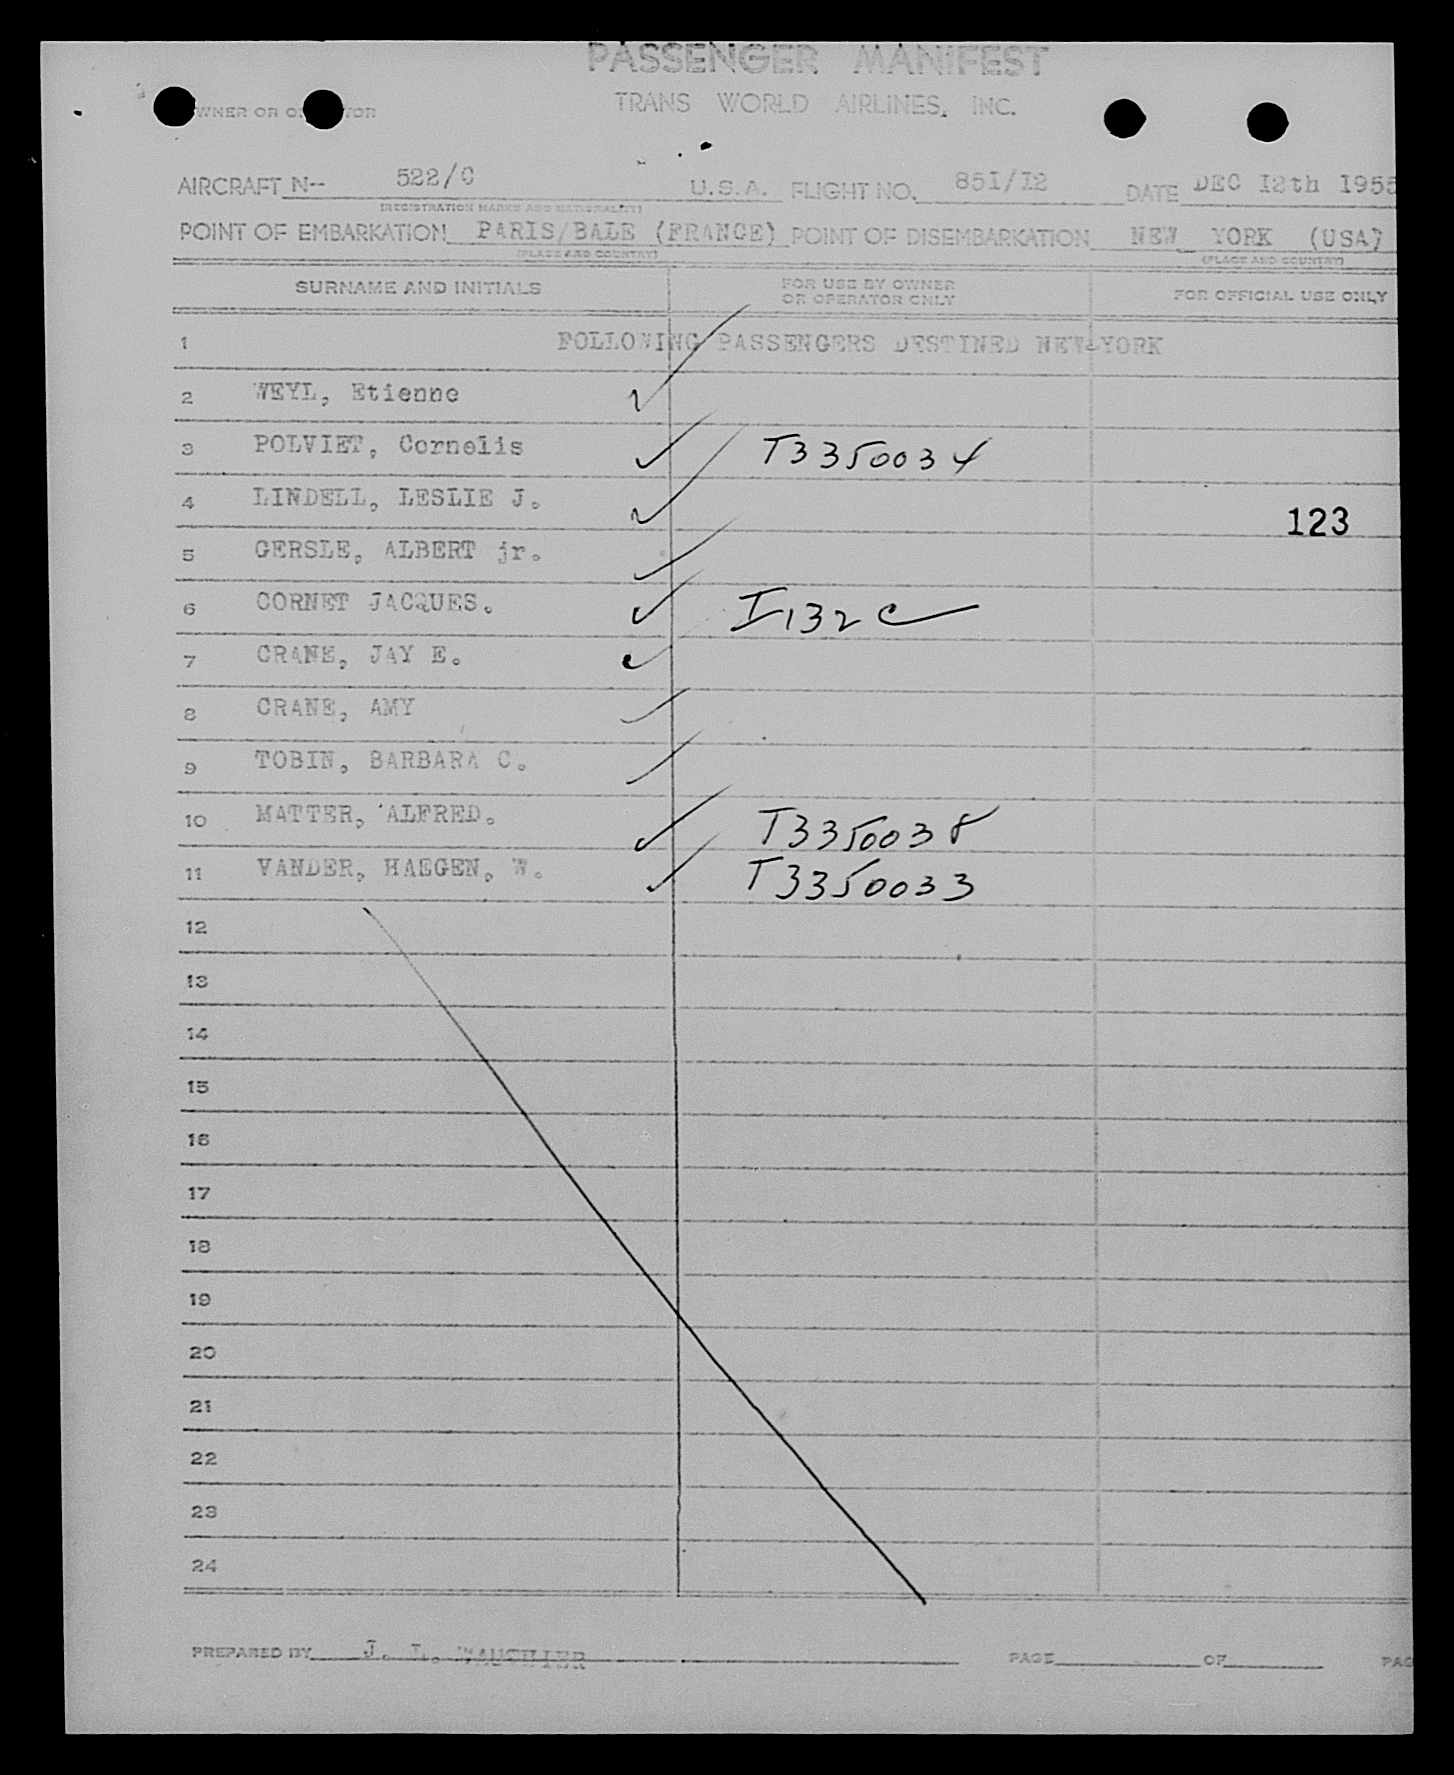 PASSENGER MANIFEST
TRANS WORLD AIRLINES, INC.
OWNER OR OPERATOR
AIRCRAFT N-- 522/C U.S.A. FLIGHT NO. 851/I2 DATE DEC I2th 1955
(REGISTRATION MARKS AND NATIONALITY)
POINT OF EMBARKATION PARIS/BALE (FRANCE) POINT OF DISEMBARKATION NEW YORK (USA)
(PLACE AND COUNTRY) (PLACE AND COUNTRY)
SURNAME AND INITIALS FOR USE BY OWNER OR OPERATOR ONLY FOR OFFICIAL USE ONLY
1 FOLLOWING PASSENGERS DESTINED NEW-YORK
2 WEYL, Etienne
3 POLVIET, Cornelis T3350034
4 LINDELL, LESLIE J.
123
5 GERSLE, ALBERT jr.
6 CORNET JACQUES. I-132c
7 CRANE, JAY E.
8 CRANE, AMY
9 TOBIN, BARBARA C.
10 MATTER, ALFRED. T3350038
11 VANDER, HAEGEN, W. T3350033
12
13
14
15
16
17
18
19
20
21
22
23
24
PREPARED BY J. L. PAGE OF PAG